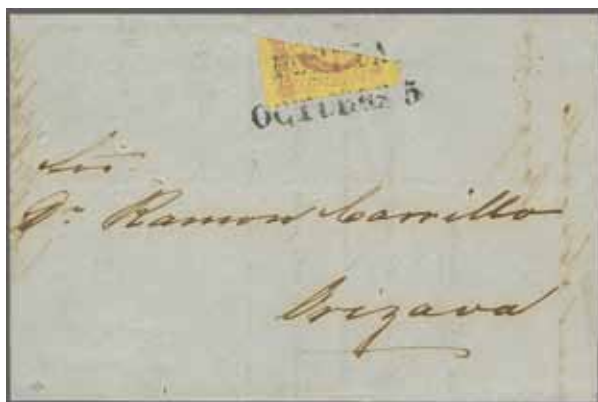 OCTUBRE 5
Sor.
Dn. Ramon Carrillo
Orizava